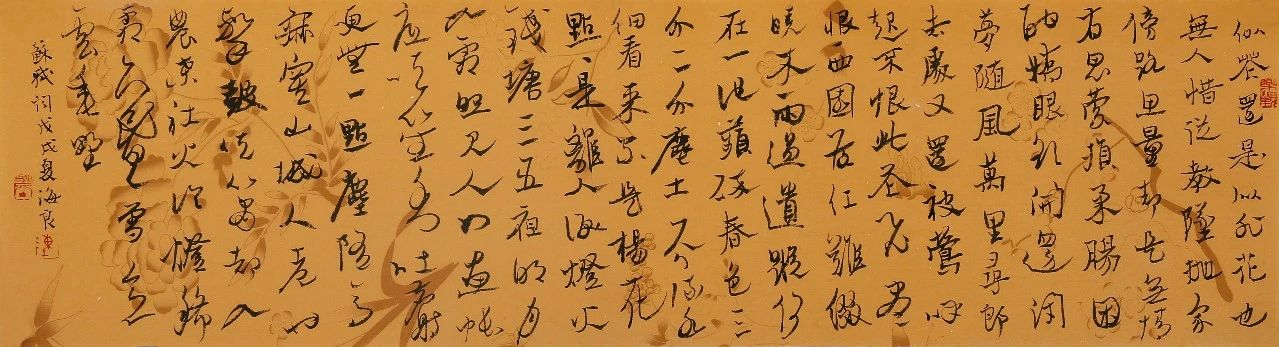 似花還是似非花也
無人惜從教墜抛家
傍路思量却是無情
有思縈損柔腸困
酣嬌眼欲開還閉
夢隨風萬里尋郎
去處又還被鶯呼
起不恨此花飛盡
恨西園落紅難綴
曉來雨過遺蹤何
在一池萍碎春色三
分二分塵土一分流水
細看來不是楊花
點點是離人淚燈火
錢塘三五夜明月
如霜照見人如畫帳
底吹笙香吐麝
更無一點塵隨馬
寂寞山城人老也
擊鼓吹簫却入
農桑社火冷燈稀
霜露下昏昏雪意
雲垂野
蘇軾詞戊戌夏海良